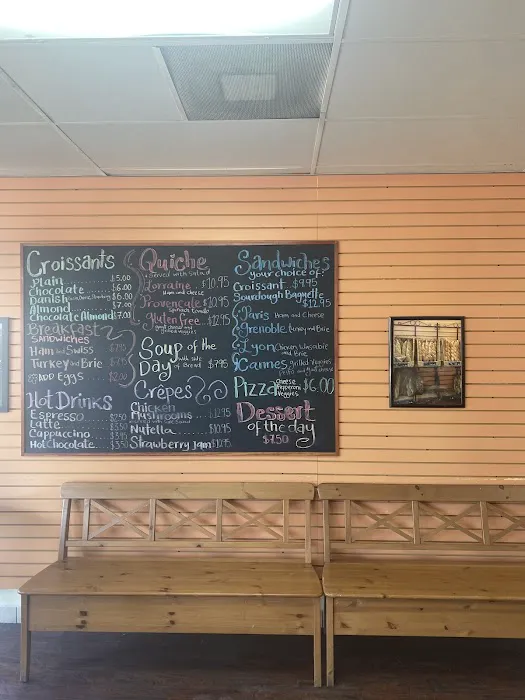 Croissants
Plain $5.00
Chocolate $6.00
Danish $6.00
Almond $7.00
Chocolate Almond $7.00
Breakfast
Sandwiches
Ham and Swiss $7.95
Turkey and Brie $7.95
add Eggs $2.00
Hot Drinks
Espresso $2.50
Latte $3.50
Cappuccino $3.95
Hot Chocolate $3.50
Quiche
served with salad
Lorraine $10.95
Ham and cheese
Provencale $10.95
Spinach Tomato
Gluten free $12.95
Soup of the
Day with side of Bread $7.95
Crêpes
Chicken
Mushrooms 12.95
Nutella $10.95
Strawberry Jam $10.95
Sandwiches
your choice of:
Croissant $9.95
Sourdough Baguette
$12.95
Paris Ham and Cheese
Grenoble Turkey and Brie
Lyon Chicken
and Brie
Cannes Grilled Veggies
Pizza Cheese Pepperoni Veggies $6.00
Dessert
of the day
$7.50